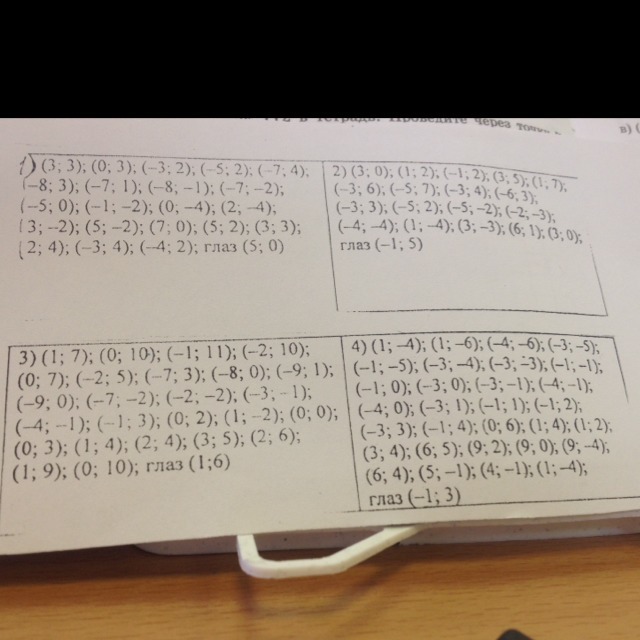 в тетрадь. Проведите через
в) (
1) (3; 3); (0; 3); (−3; 2); (−5; 2); (−7; 4);
(−8; 3); (−7; 1); (−8; −1); (−7; −2);
(−5; 0); (−1; −2); (0; −4); (2; −4);
(3; −2); (5; −2); (7; 0); (5; 2); (3; 3);
(2; 4); (−3; 4); (−4; 2); глаз (5; 0)
2) (3; 0); (1; 2); (−1; 2); (3; 5); (1; 7);
(−3; 6); (−5; 7); (−3; 4); (−6; 3);
(−3; 3); (−5; 2); (−5; −2); (−2; −3);
(−4; −4); (1; −4); (3; −3); (6; 1); (3; 0);
глаз (−1; 5)
3) (1; 7); (0; 10); (−1; 11); (−2; 10);
(0; 7); (−2; 5); (−7; 3); (−8; 0); (−9; 1);
(−9; 0); (−7; −2); (−2; −2); (−3; −1);
(−4; −1); (−1; 3); (0; 2); (1; −2); (0; 0);
(0; 3); (1; 4); (2; 4); (3; 5); (2; 6);
(1; 9); (0; 10); глаз (1;6)
4) (1; −4); (1; −6); (−4; −6); (−3; −5);
(−1; −5); (−3; −4); (−3; −3); (−1; −1);
(−1; 0); (−3; 0); (−3; −1); (−4; −1);
(−4; 0); (−3; 1); (−1; 1); (−1; 2);
(−3; 3); (−1; 4); (0; 6); (1; 4); (1; 2);
(3; 4); (6; 5); (9; 2); (9; 0); (9; −4);
(6; 4); (5; −1); (4; −1); (1; −4);
глаз (−1; 3)